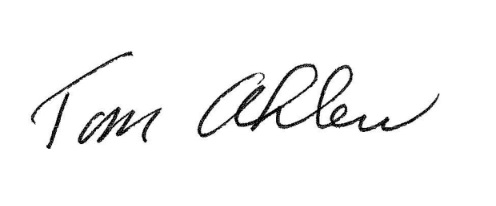 Tom Ahlen